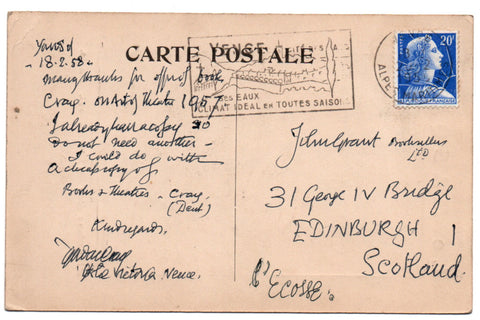 CARTE POSTALE
Yours of
18.2.58
many thanks for offer of book
Craig. On Art of Theatre 1957.
I already have a copy so
do not need another -
I could do with
a cheap copy of
Books & Theatres - Craig
(Dent)
Kind regards.
Victoria Vence.
VENCE
Ses EAUX
CLIMAT IDEAL en TOUTES SAISONS
POSTES
20F
John Grant Booksellers
Ltd
31 George IV Bridge
EDINBURGH 1
Scotland.
Ecosse.